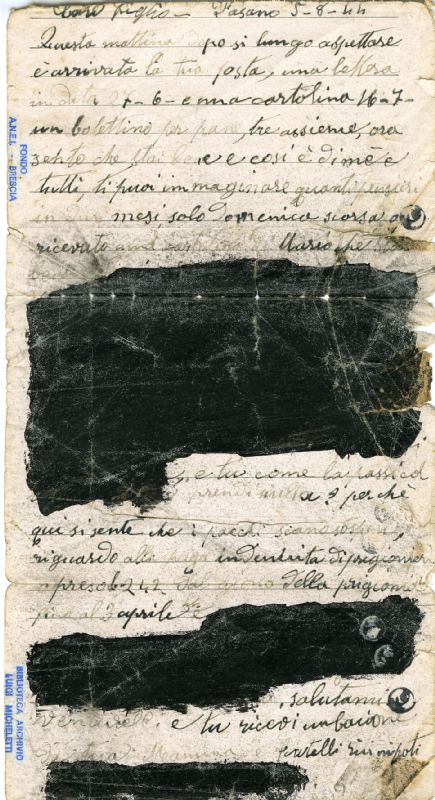 Caro figlio - Fasano 5-8-44
Questa mattina dopo si lungo aspettare
è arrivata la tua posta, una lettera
in data 27-6- e una cartolina 16-7-
un bolettino per pane, tre assieme, ora
sento che stai bene e cosi è di me è
tutti, ti puoi immaginare quanti pensieri
in due mesi solo domenica scorsa o
ricevuto una cartolina Mario che sta
bene
e tu come la passi col
prendi nulla? perchè
qui si sente che i pacchi siano sospesi,
riguardo alla paga indennita di prigioniero
o preso L 242 dal giorno della prigionia
fino al 3 aprile
salutami
e tu ricevi un bacione
fratelli nipoti
FONDO
A.N.E.I. - BRESCIA
BIBLIOTECA ARCHIVIO
LUIGI MICHELETTI